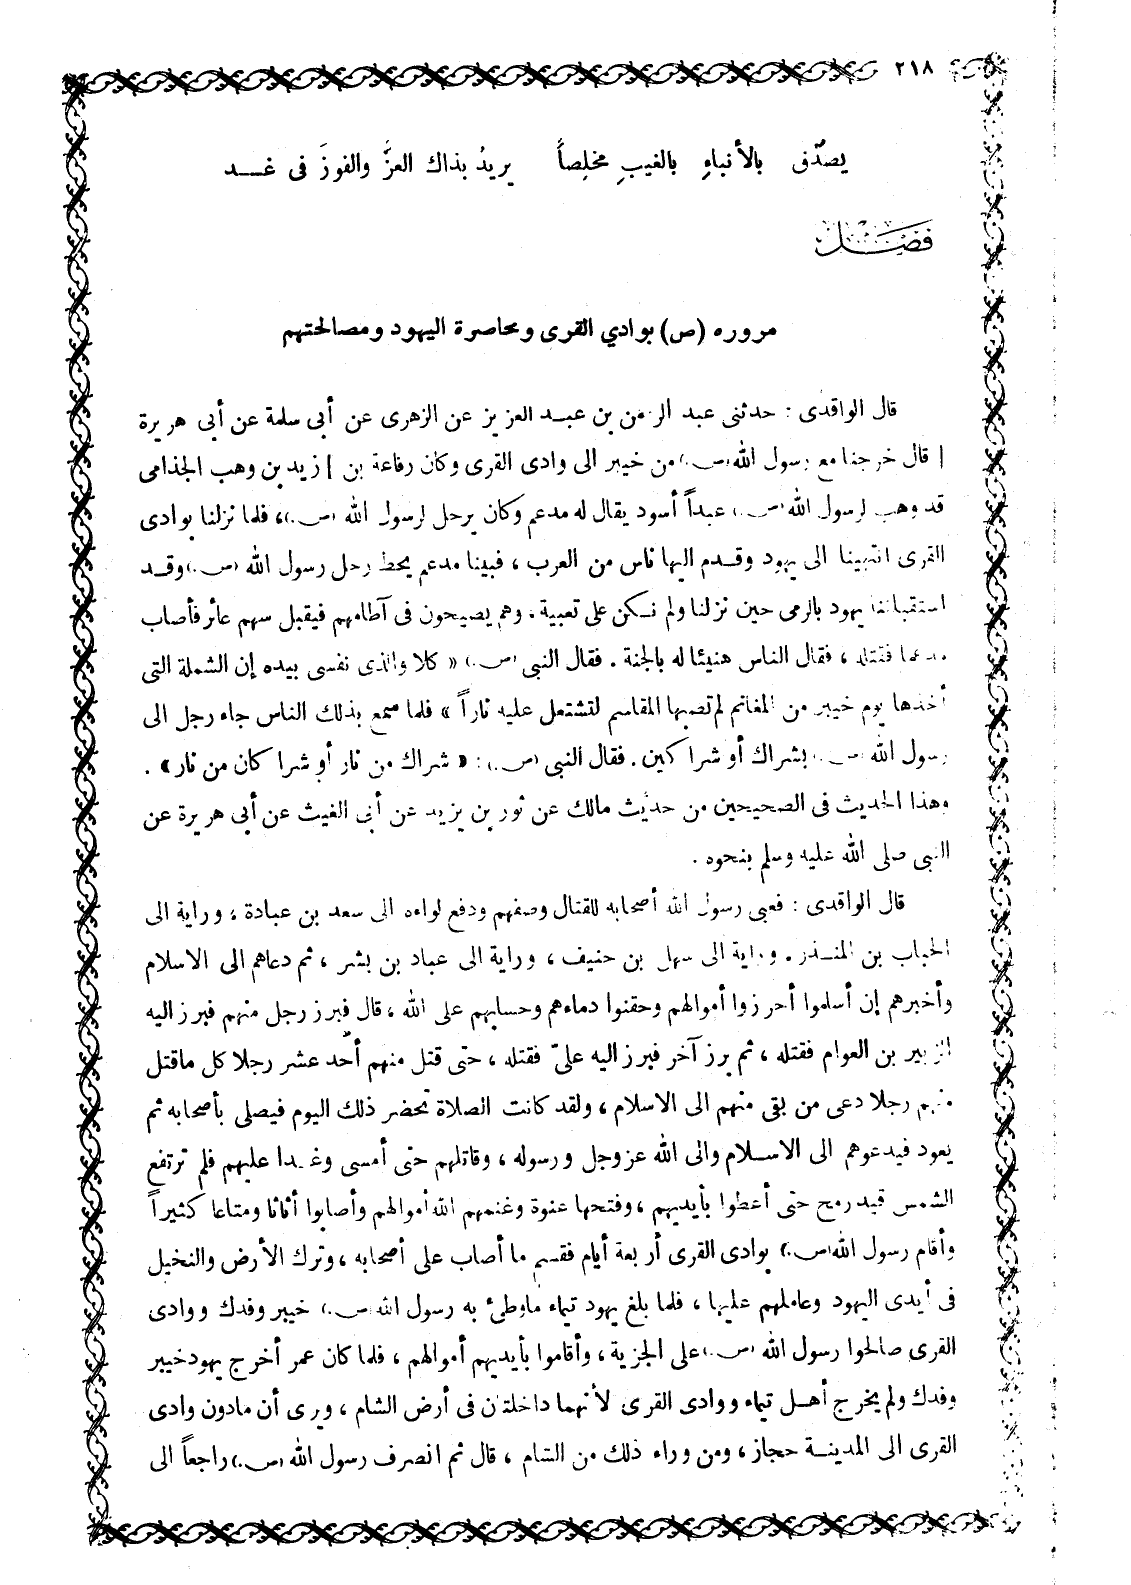 ٢١٨
يصدّق بالأنباءِ بالغيبِ مخلِصاً يريدُ بذاك العزَّ والفوزَ فى غــد
فَصْــل
مروره (ص) بوادي القرى ومحاصرة اليهود ومصالحتهم
قال الواقدى : حدثنى عبد الرحمن بن عبـد العزيز عن الزهرى عن أبى سلمة عن أبى هريرة
| قال خرجنا مع رسول الله (ص.) من خيبر الى وادى القرى وكان رفاعة بن | زيد بن وهب الجذامى
قد وهب لرسول الله (ص.) عبداً أسود يقال له مدعم وكان يرحل لرسول الله (ص.)، فلما نزلنا بوادى
القرى انتهينا الى يهود وقـدم اليها ناس من العرب ، فبينا مدعم يحط رحل رسول الله (ص.) وقـد
استقبلتنا يهود بالرمى حين نزلنا ولم نـكن على تعبية . وهم يصيحون فى آطامهم فيقبل سهم عائر فأصاب
مدعما فقتله ، فقال الناس هنيئا له بالجنة . فقال النبى (ص.) « كلا والذى نفسى بيده إن الشملة التى
أخذها يوم خيبر من المغانم لم تصبها المقاسم لتشتعل عليه ناراً » فلما سمع بذلك الناس جاء رجل الى
رسول الله (ص.) بشراك أو شراكين . فقال النبى (ص.) : « شراك من نار أو شراكان من نار » .
وهذا الحديث فى الصحيحين من حديث مالك عن ثور بن يزيد عن أبى الغيث عن أبى هريرة عن
النبى صلى الله عليه وسلم بنحوه .
قال الواقدى : فعبى رسول الله أصحابه للقتال وصفهم ودفع لواءه الى سعد بن عبادة ، وراية الى
الحباب بن المنـذر . وراية الى سهل بن حنيف ، وراية الى عباد بن بشر ، ثم دعاهم الى الاسلام
وأخبرهم إن أسلموا أحرزوا أموالهم وحقنوا دماءهم وحسابهم على الله ، قال فبرز رجل منهم فبرز اليه
الزبير بن العوام فقتله ، ثم برز آخر فبرز اليه علىّ فقتله ، حتى قتل منهم أحد عشر رجلا كل ما قتل
منهم رجلا دعى من بقى منهم الى الاسلام ، ولقد كانت الصلاة تحضر ذلك اليوم فيصلى بأصحابه ثم
يعود فيدعوهم الى الاسـلام والى الله عز وجل ورسوله ، وقاتلهم حتى أمسى وغـدا عليهم فلم ترتفع
الشمس قيد رمح حتى أعطوا بأيديهم ، وفتحها عنوة وغنمهم الله أموالهم وأصابوا أثاثا ومتاعا كثيراً
وأقام رسول الله (ص.) بوادى القرى أربعة أيام فقسم ما أصاب على أصحابه ، وترك الأرض والنخيل
فى أيدى اليهود وعاملهم عليها ، فلما بلغ يهود تيماء ما وطئ به رسول الله (ص.) خيبر وفدك ووادى
القرى صالحوا رسول الله (ص.) على الجزية ، وأقاموا بأيديهم أموالهم ، فلما كان عمر أخرج يهود خيبر
وفدك ولم يخرج أهـل تيماء ووادى القرى لأنهما داخلتان فى أرض الشام ، ويرى أن مادون وادى
القرى الى المدينـة حجاز ، ومن وراء ذلك من الشام ، قال ثم انصرف رسول الله (ص.) راجعاً الى